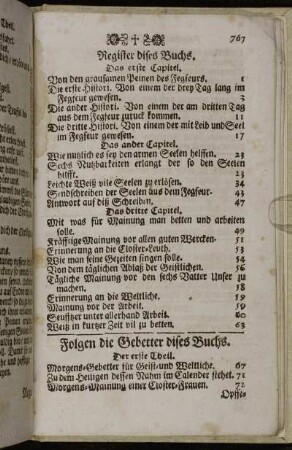 767
Register dises Buchs.
Das erste Capitel.
Von den grausamen Peinen des Fegfeurs. 1
Die erste Histori. Von einem der drey Tag lang im
Fegfeur gewesen. 3
Die ander Histori. Von einem der am dritten Tag
aus dem Fegfeur zuruck kommen. 11
Die dritte Histori. Von einem der mit Leib und Seel
im Fegfeur gewesen. 17
Das ander Capitel.
Wie nutzlich es sey den armen Seelen helffen. 23
Sechs Nutzbarkeiten erlangt der so den Seelen
hilfft. 23
Leichte Weiß vile Seelen zu erlösen. 34
Sendschreiben der Seelen aus dem Fegfeur. 43
Antwort auf diß Schreiben. 47
Das dritte Capitel.
Mit was für Mainung man betten und arbeiten
solle. 49
Kräfftige Mainung vor allen guten Wercken. 51
Erinnerung an die Closter-Leuth. 53
Wie man seine Gezeiten singen solle. 54
Von dem täglichen Ablaß der Geistlichen. 56
Tägliche Mainung vor den sechs Vatter Unser zu
machen. 18
Erinnerung an die Weltliche. 59
Mainung vor der Arbeit. 59
Seuffzer unter allerhand Arbeit. 60
Weiß in kurtzer Zeit vil zu betten. 63
Folgen die Gebetter dises Buchs.
Der erste Theil.
Morgens-Gebetter für Geist- und Weltliche. 67
Zu dem Heiligen dessen Nahm im Calender stehet. 71
Morgens-Mainung einer Closter-Frauen. 72
Opffe-